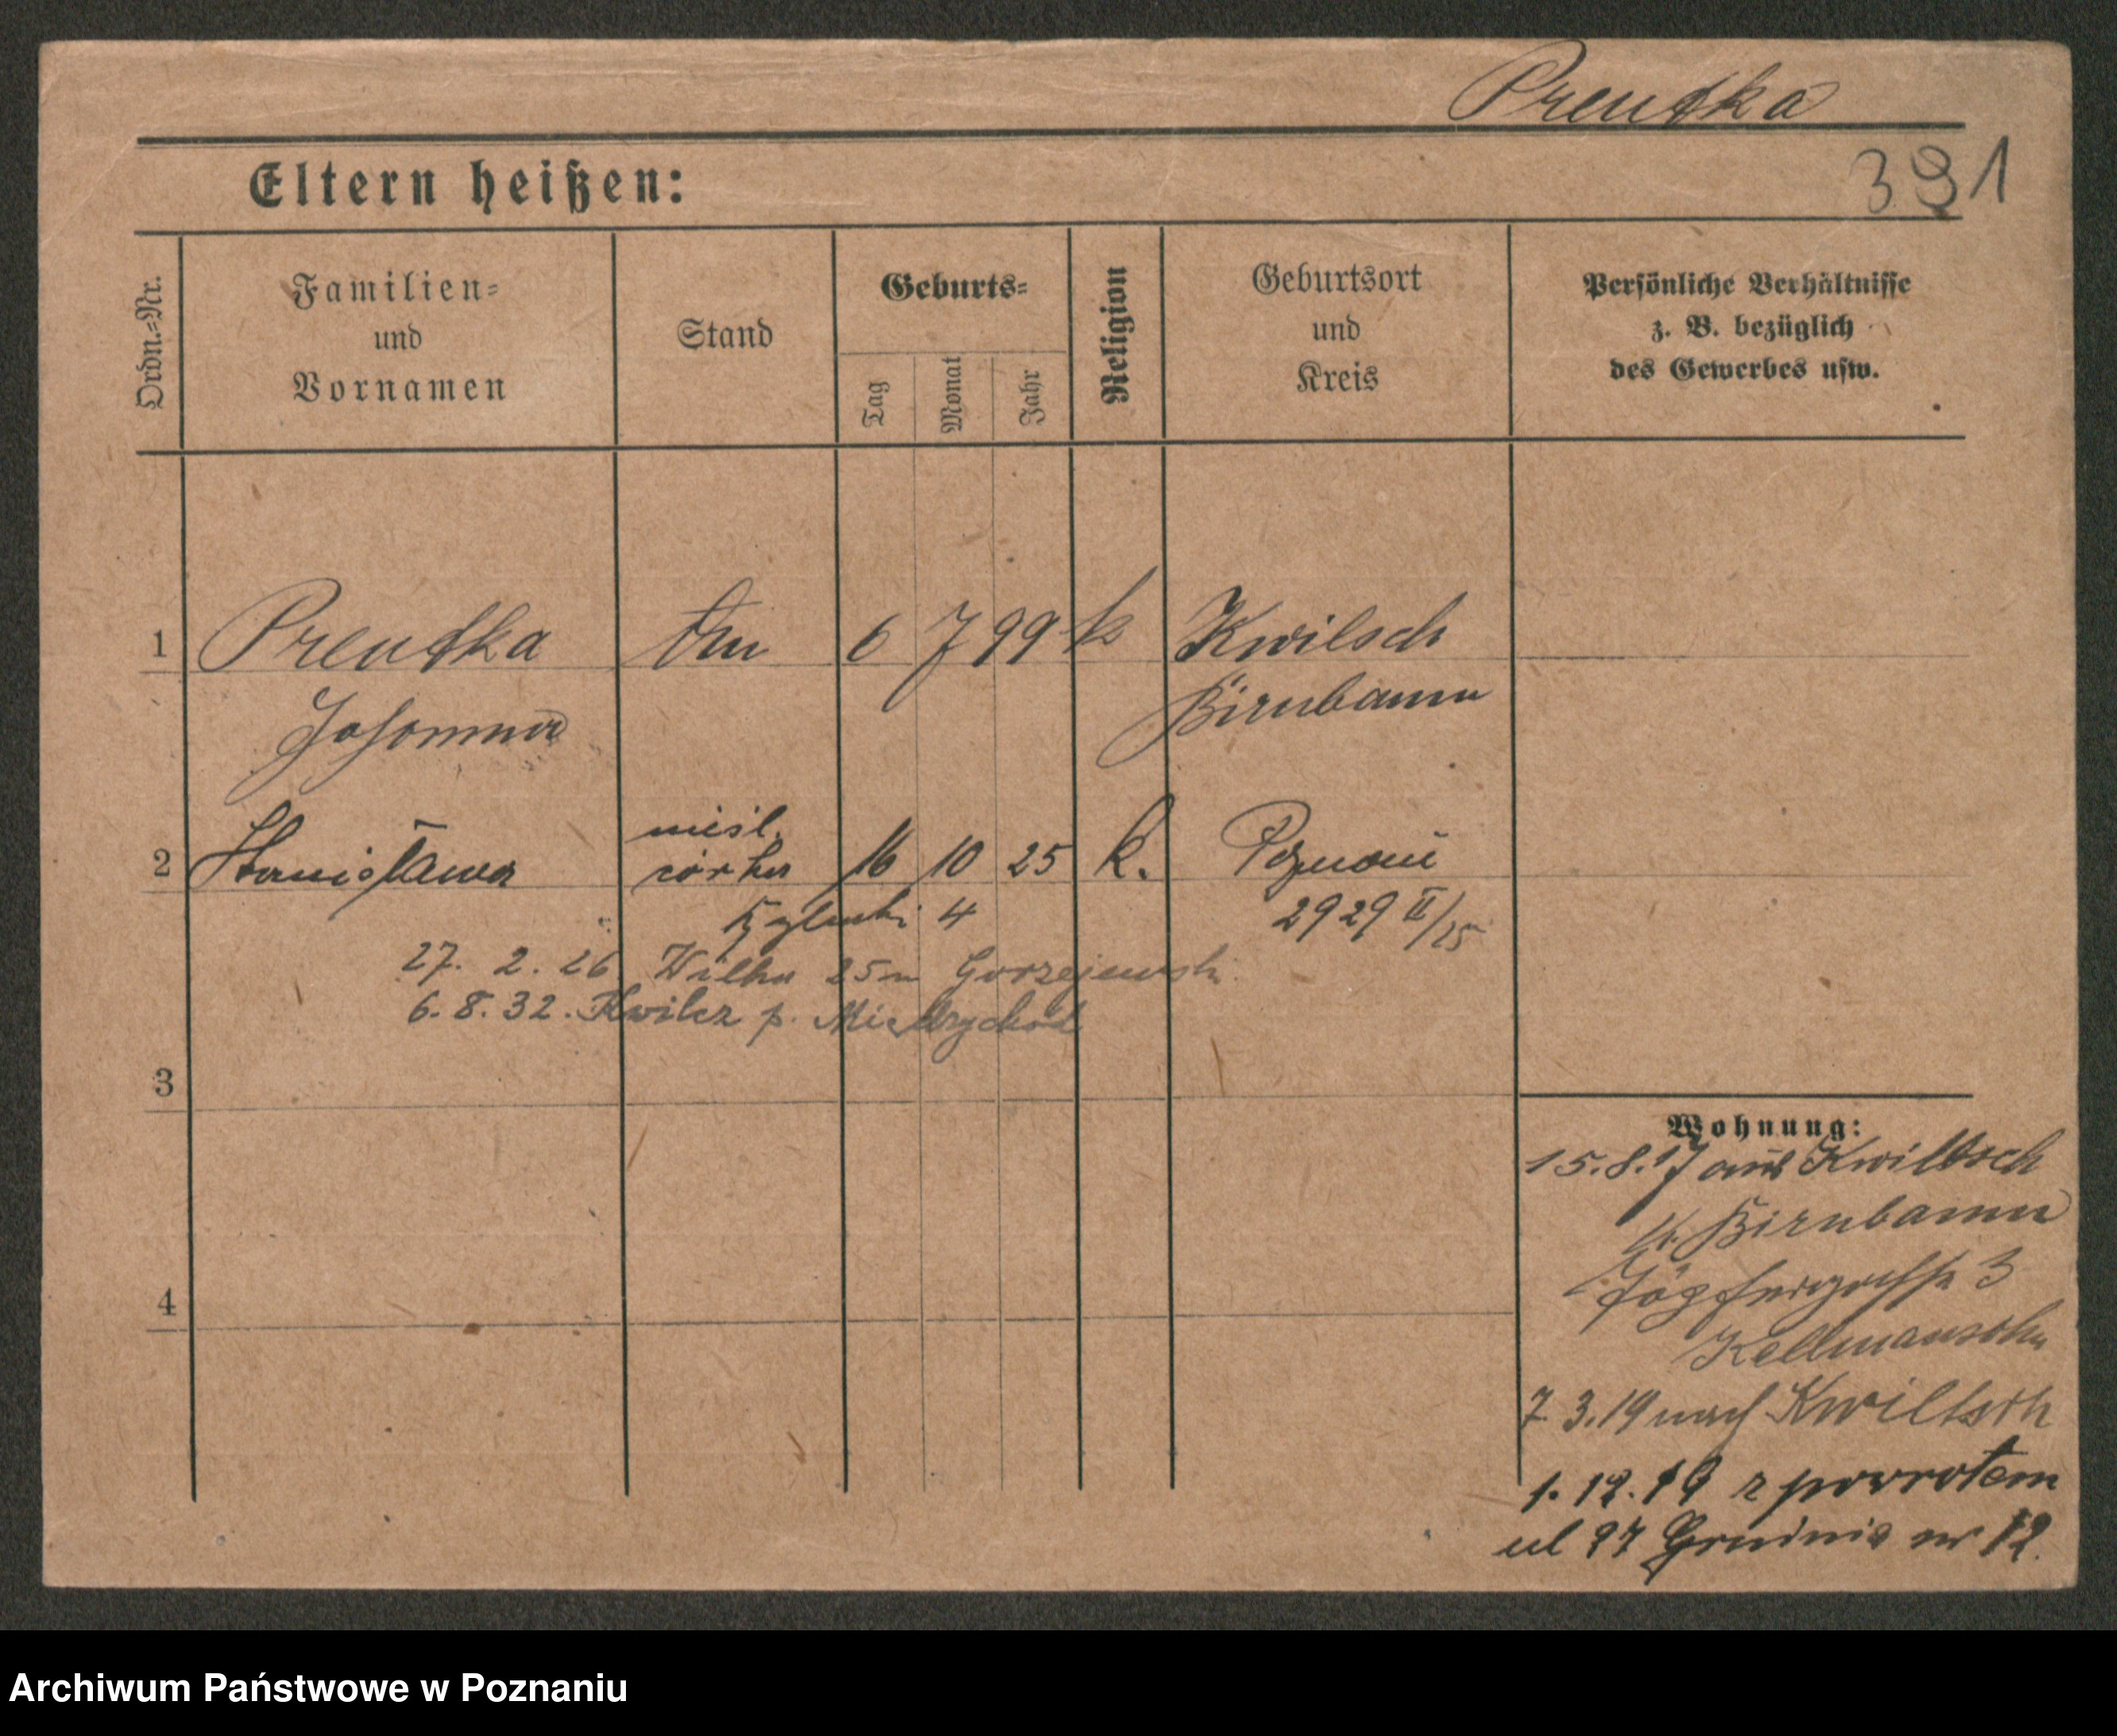 Preuſka
391
Eltern heißen:
Ordn.=Nr.
Familien=
und
Vornamen
Stand
Geburts=
Tag
Monat
Jahr
Religion
Geburtsort
und
Kreis
Persönliche Verhältnisse
z. B. bezüglich
des Gewerbes usw.
1 6 7 99 k Kwilsch
Johanna Birnbaum
2 Stanisława nieśl. córka 16 10 25 k. Poznań
4 2929 II/25
27. 2. 26 Wilka 25 Gorzejewski
6. 8. 32. Kwilcz p. Międzychód
3
4
Wohnung:
15.8.17 aus Kwiltsch
Kr. Birnbaum
Töpfergasse 3
Kellmansohn
7.3.19 nach Kwiltsch
1. 12. 19 z powrotem
ul 27 Grudnia nr 12.
Archiwum Państwowe w Poznaniu